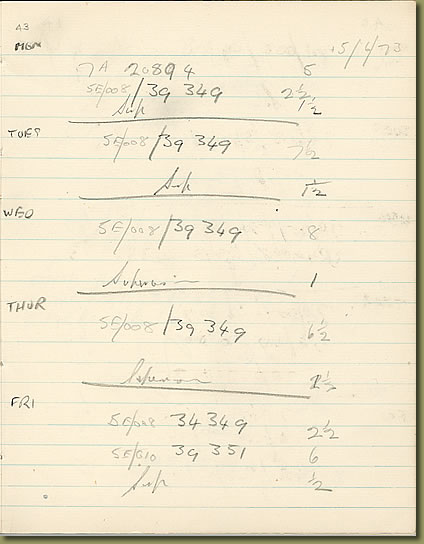 A3
MON
15/1/73
7A 20894 5
SE/008/39 349 2½
Sup 1½
TUES
SE/008/39 349 7½
Sup 1½
WED
SE/008/39 349 8
Supervision 1
THUR
SE/008/39 349 6½
Supervision 1½
FRI
SE/008 34 349 2½
SE/010 39 351 6
Sup ½